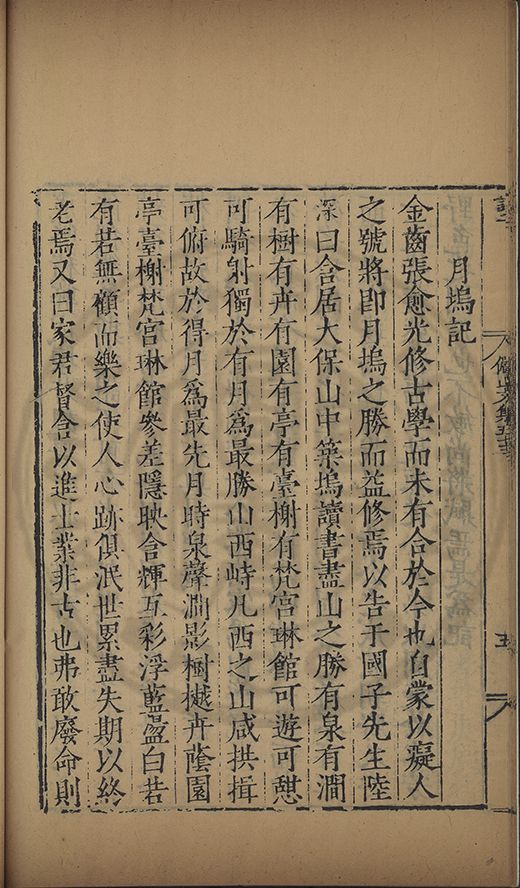 月塢記
金齒張愈光修古學而未有合於今也自蒙以癡人
之號將即月塢之勝而益修焉以告于國子先生陸
深曰含居大保山中築塢讀書盡山之勝有泉有澗
有樹有卉有園有亭有臺榭有梵宮琳館可遊可憩
可騎射獨於有月爲最勝山西峙凡西之山咸拱揖
可俯故於得月爲最先月時泉聲澗影樹樾卉蔭園
亭臺榭梵宮琳館參差隱映含輝互彩浮藍盈白若
有若無顧而樂之使人心跡俱泯世累盡失期以終
老焉又曰家君督含以進士業非古也弗敢廢命則
五